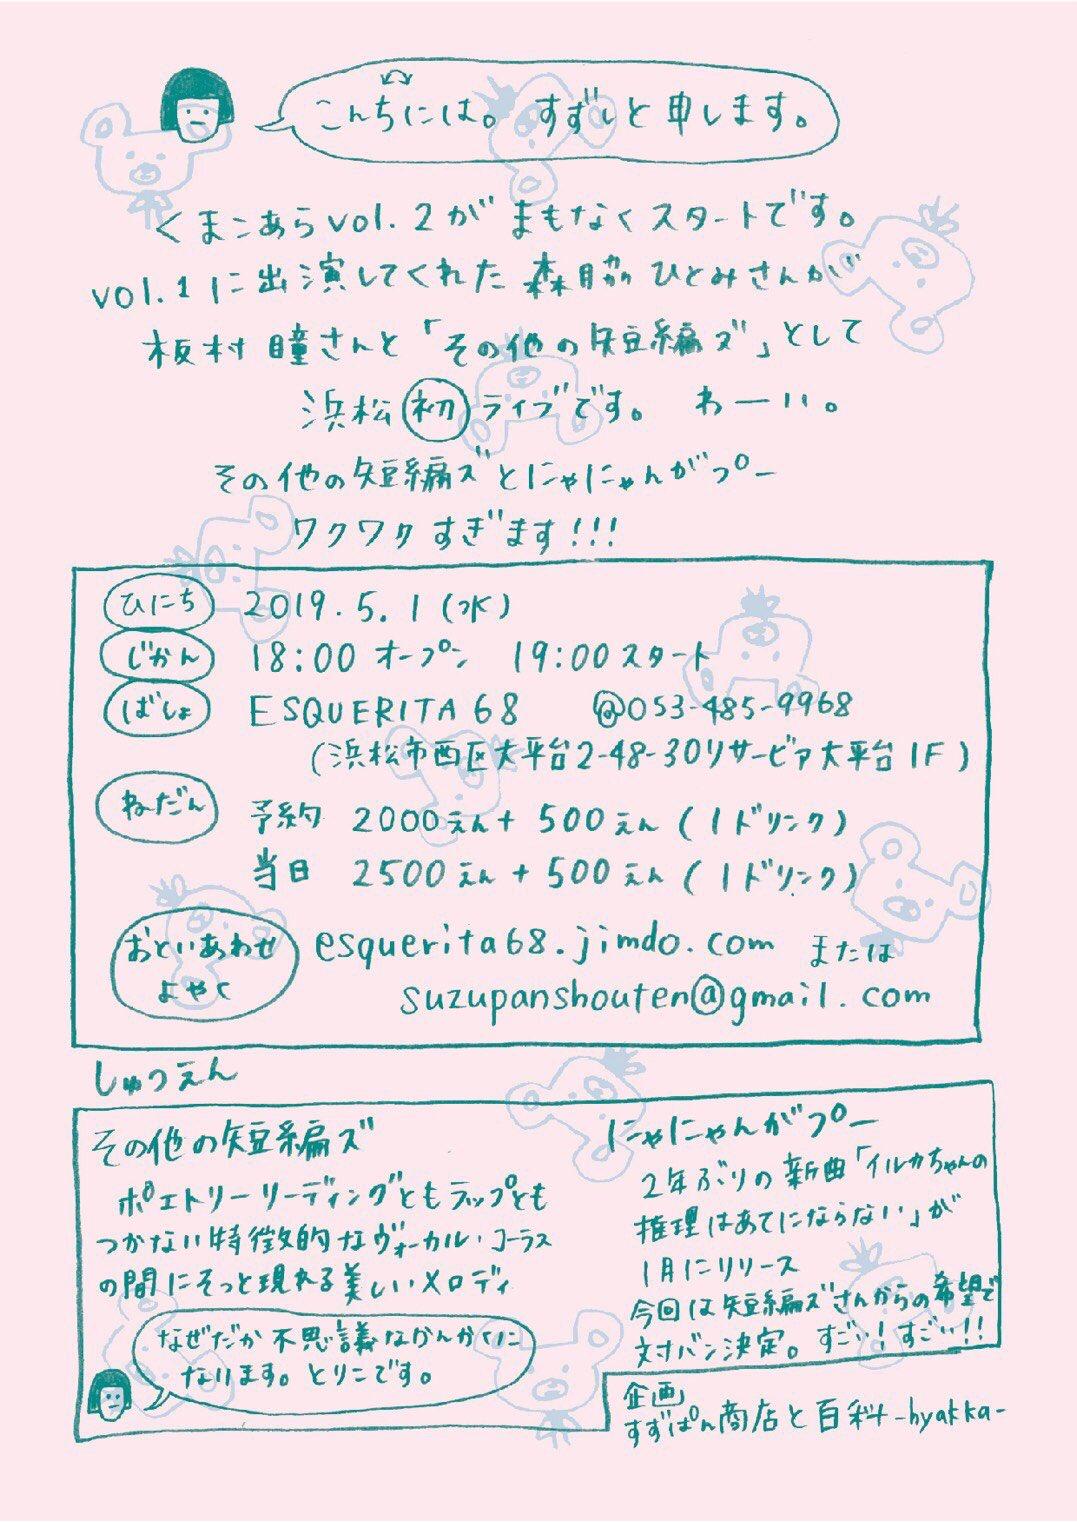 こんちには。 すずしと申します。
くまこあらvol.2がまもなくスタートです。
vol.1に出演してくれた森脇ひとみさんが
板村瞳さんと「その他の短編ズ」として
浜松初ライブです。 わーい。
その他の短編ズとにゃにゃんがプー
ワクワクすぎます!!!
ひにち 2019.5.1(水)
じかん 18:00オープン 19:00スタート
ばしょ ESQUERITA68 @053-485-9968
(浜松市西区大平台2-48-30リサービア大平台1F)
ねだん 予約 2000えん+500えん(1ドリンク)
当日 2500えん+500えん(1ドリンク)
おといあわせ よやく esquerita68.jimdo.com または
suzupanshouten@gmail.com
しゅつえん
その他の短編ズ
ポエトリーリーディングともラップとも
つかない特徴的なヴォーカル・コーラス
の間にそっと現れる美しいメロディ
なぜだか不思議なかんかくに
なります。とりこです。
にゃにゃんがプー
2年ぶりの新曲「イルカちゃんの
推理はあてにならない」が
1月にリリース
今回は短編ズさんからの希望で
対バン決定。すごい!すごい!!
企画
すずぱん商店と百科-hyakka-